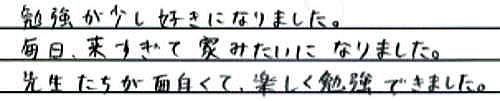 勉強が少し好きになりました。
毎日、来すぎて家みたいになりました。
先生たちが面白くて、楽しく勉強できました。